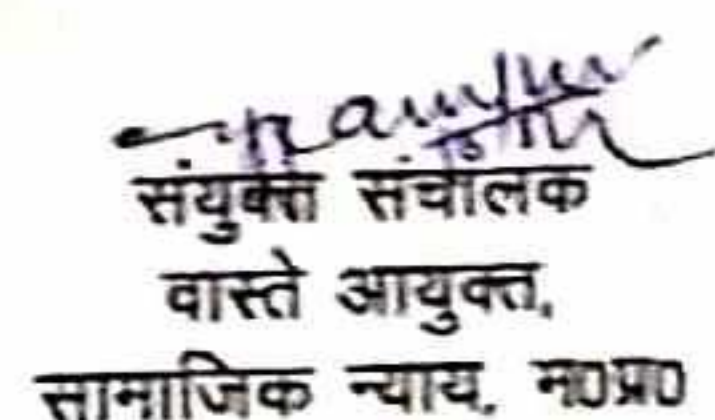 संयुक्त संचालक
वास्ते आयुक्त,
सामाजिक न्याय, म0प्र0